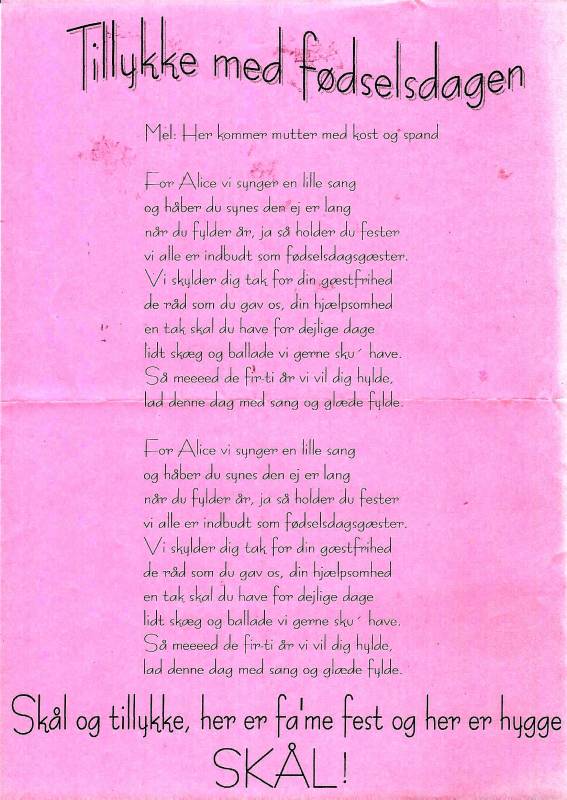 Tillykke med fødselsdagen
Mel: Her kommer mutter med kost og spand
For Alice vi synger en lille sang
og håber du synes den ej er lang
når du fylder år, ja så holder du fester
vi alle er indbudt som fødselsdagsgæster.
Vi skylder dig tak for din gæstfrihed
de råd som du gav os, din hjælpsomhed
en tak skal du have for dejlige dage
lidt skæg og ballade vi gerne sku´ have.
Så meeeed de fir-ti år vi vil dig hylde,
lad denne dag med sang og glæde fylde.
For Alice vi synger en lille sang
og håber du synes den ej er lang
når du fylder år, ja så holder du fester
vi alle er indbudt som fødselsdagsgæster.
Vi skylder dig tak for din gæstfrihed
de råd som du gav os, din hjælpsomhed
en tak skal du have for dejlige dage
lidt skæg og ballade vi gerne sku´ have.
Så meeeed de fir-ti år vi vil dig hylde,
lad denne dag med sang og glæde fylde.
Skål og tillykke, her er fa'me fest og her er hygge
SKÅL!